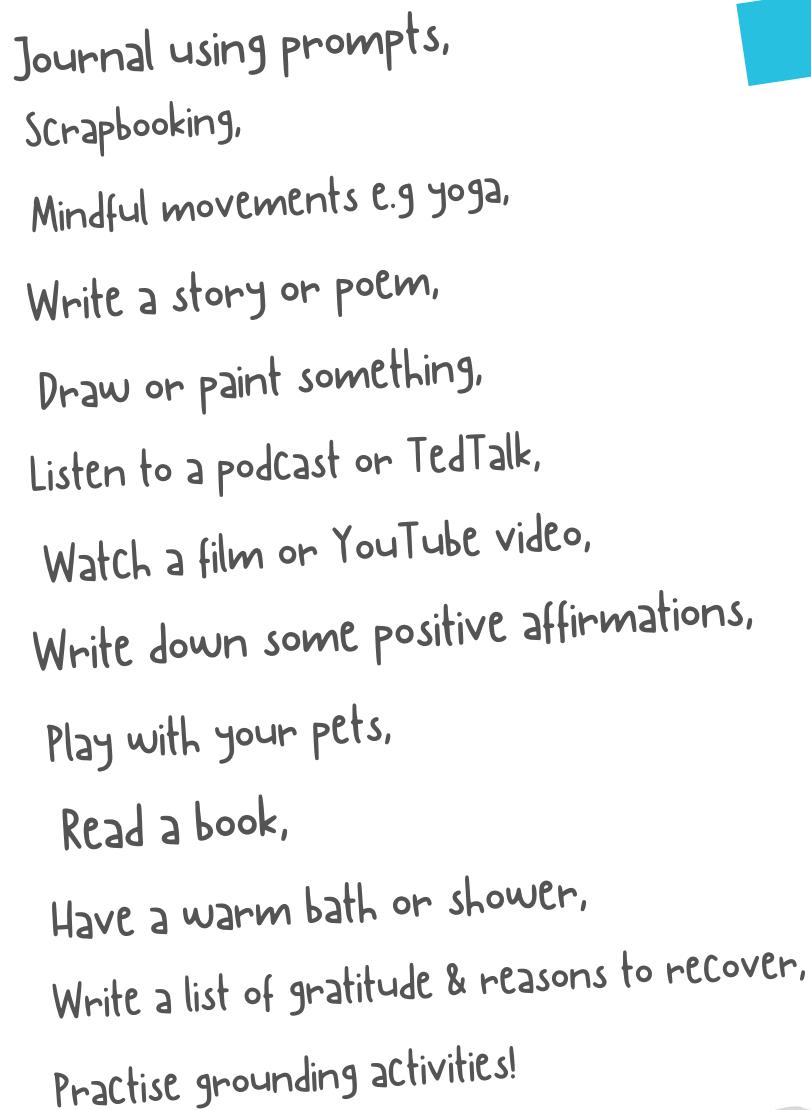 Journal using prompts,
Scrapbooking,
Mindful movements e.g yoga,
Write a story or poem,
Draw or paint something,
Listen to a podcast or TedTalk,
Watch a film or YouTube video,
Write down some positive affirmations,
Play with your pets,
Read a book,
Have a warm bath or shower,
Write a list of gratitude & reasons to recover,
Practise grounding activities!